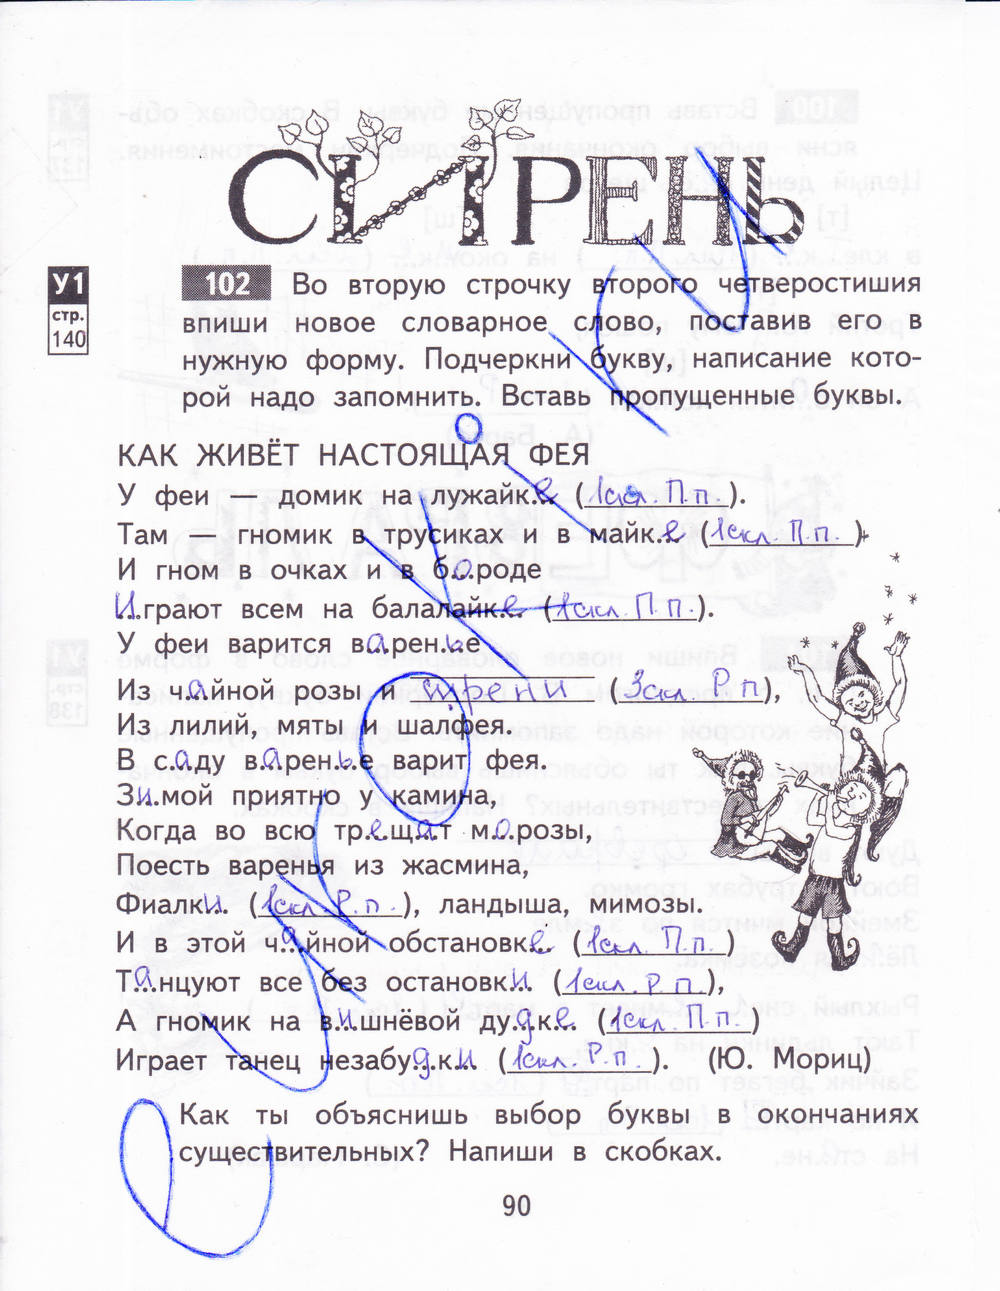 СИРЕНЬ
У1
стр.
140
102 Во вторую строчку второго четверостишия
впиши новое словарное слово, поставив его в
нужную форму. Подчеркни букву, написание кото-
рой надо запомнить. Вставь пропущенные буквы.
КАК ЖИВЁТ НАСТОЯЩАЯ ФЕЯ
У феи — домик на лужайк.е. (1скл. П.п.).
Там — гномик в трусиках и в майк.е. (1скл. П.п.).
И гном в очках и в б.о.роде
.И.грают всем на балалайк.е. (1скл. П.п.).
У феи варится в.а.рен.ь.е
Из ч.а.йной розы и сирени (3скл. Р.п.),
Из лилий, мяты и шалфея.
В с.а.ду в.а.рен.ь.е варит фея.
З.и.мой приятно у камина,
Когда во всю тр.е.щ.а.т м.о.розы,
Поесть варенья из жасмина,
Фиалк.и. (1скл. Р.п.), ландыша, мимозы.
И в этой ч.а.йной обстановк.е. (1скл. П.п.)
Т.а.нцуют все без остановк.и. (1скл. Р.п.),
А гномик на в.и.шнёвой ду.д.к.е. (1скл. П.п.)
Играет танец незабу.д.к.и. (1скл. Р.п.). (Ю. Мориц)
Как ты объяснишь выбор буквы в окончаниях
существительных? Напиши в скобках.
90